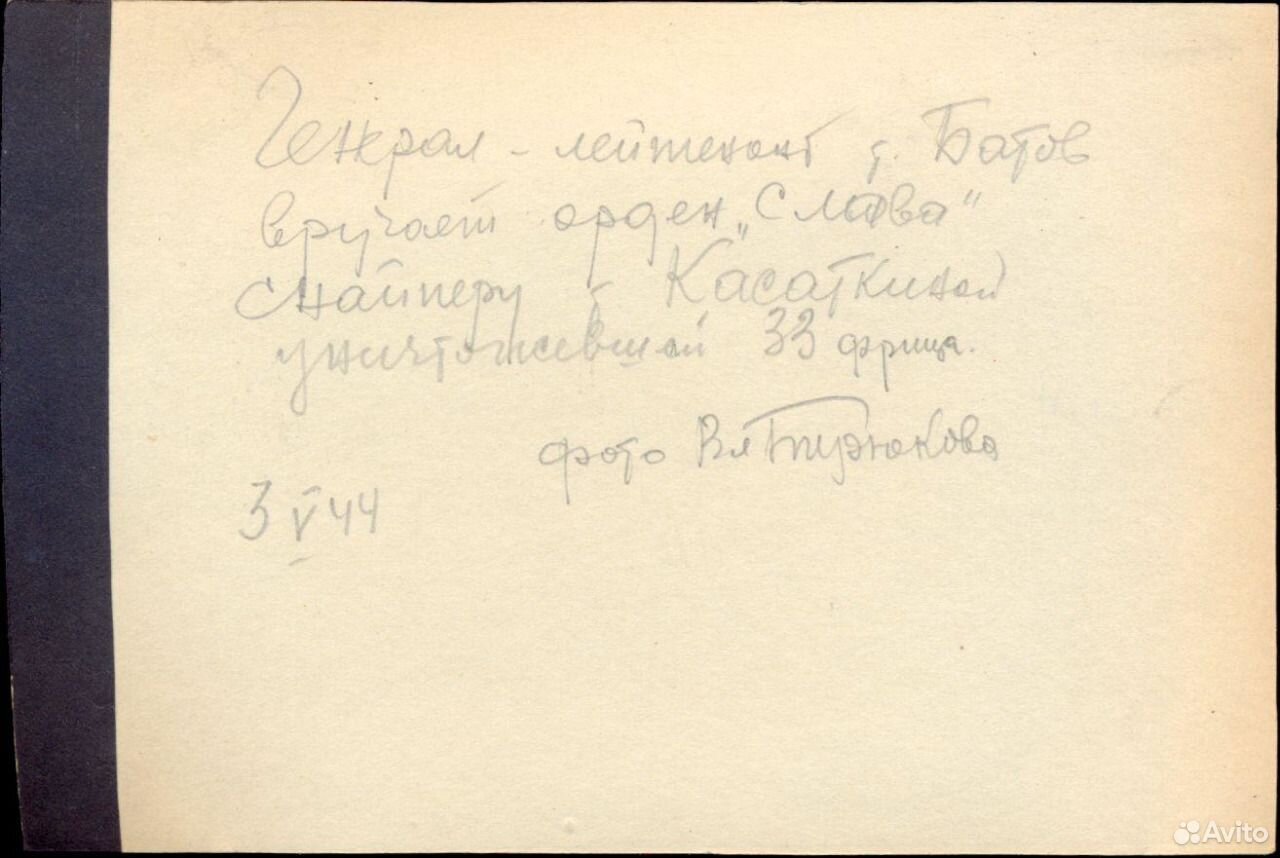 Генерал - лейтенант т. Батов
вручает орден „Слава"
снайперу т Касаткиной
уничтожевшей 33 фрица.
фото Вл
3 V 44
Avito